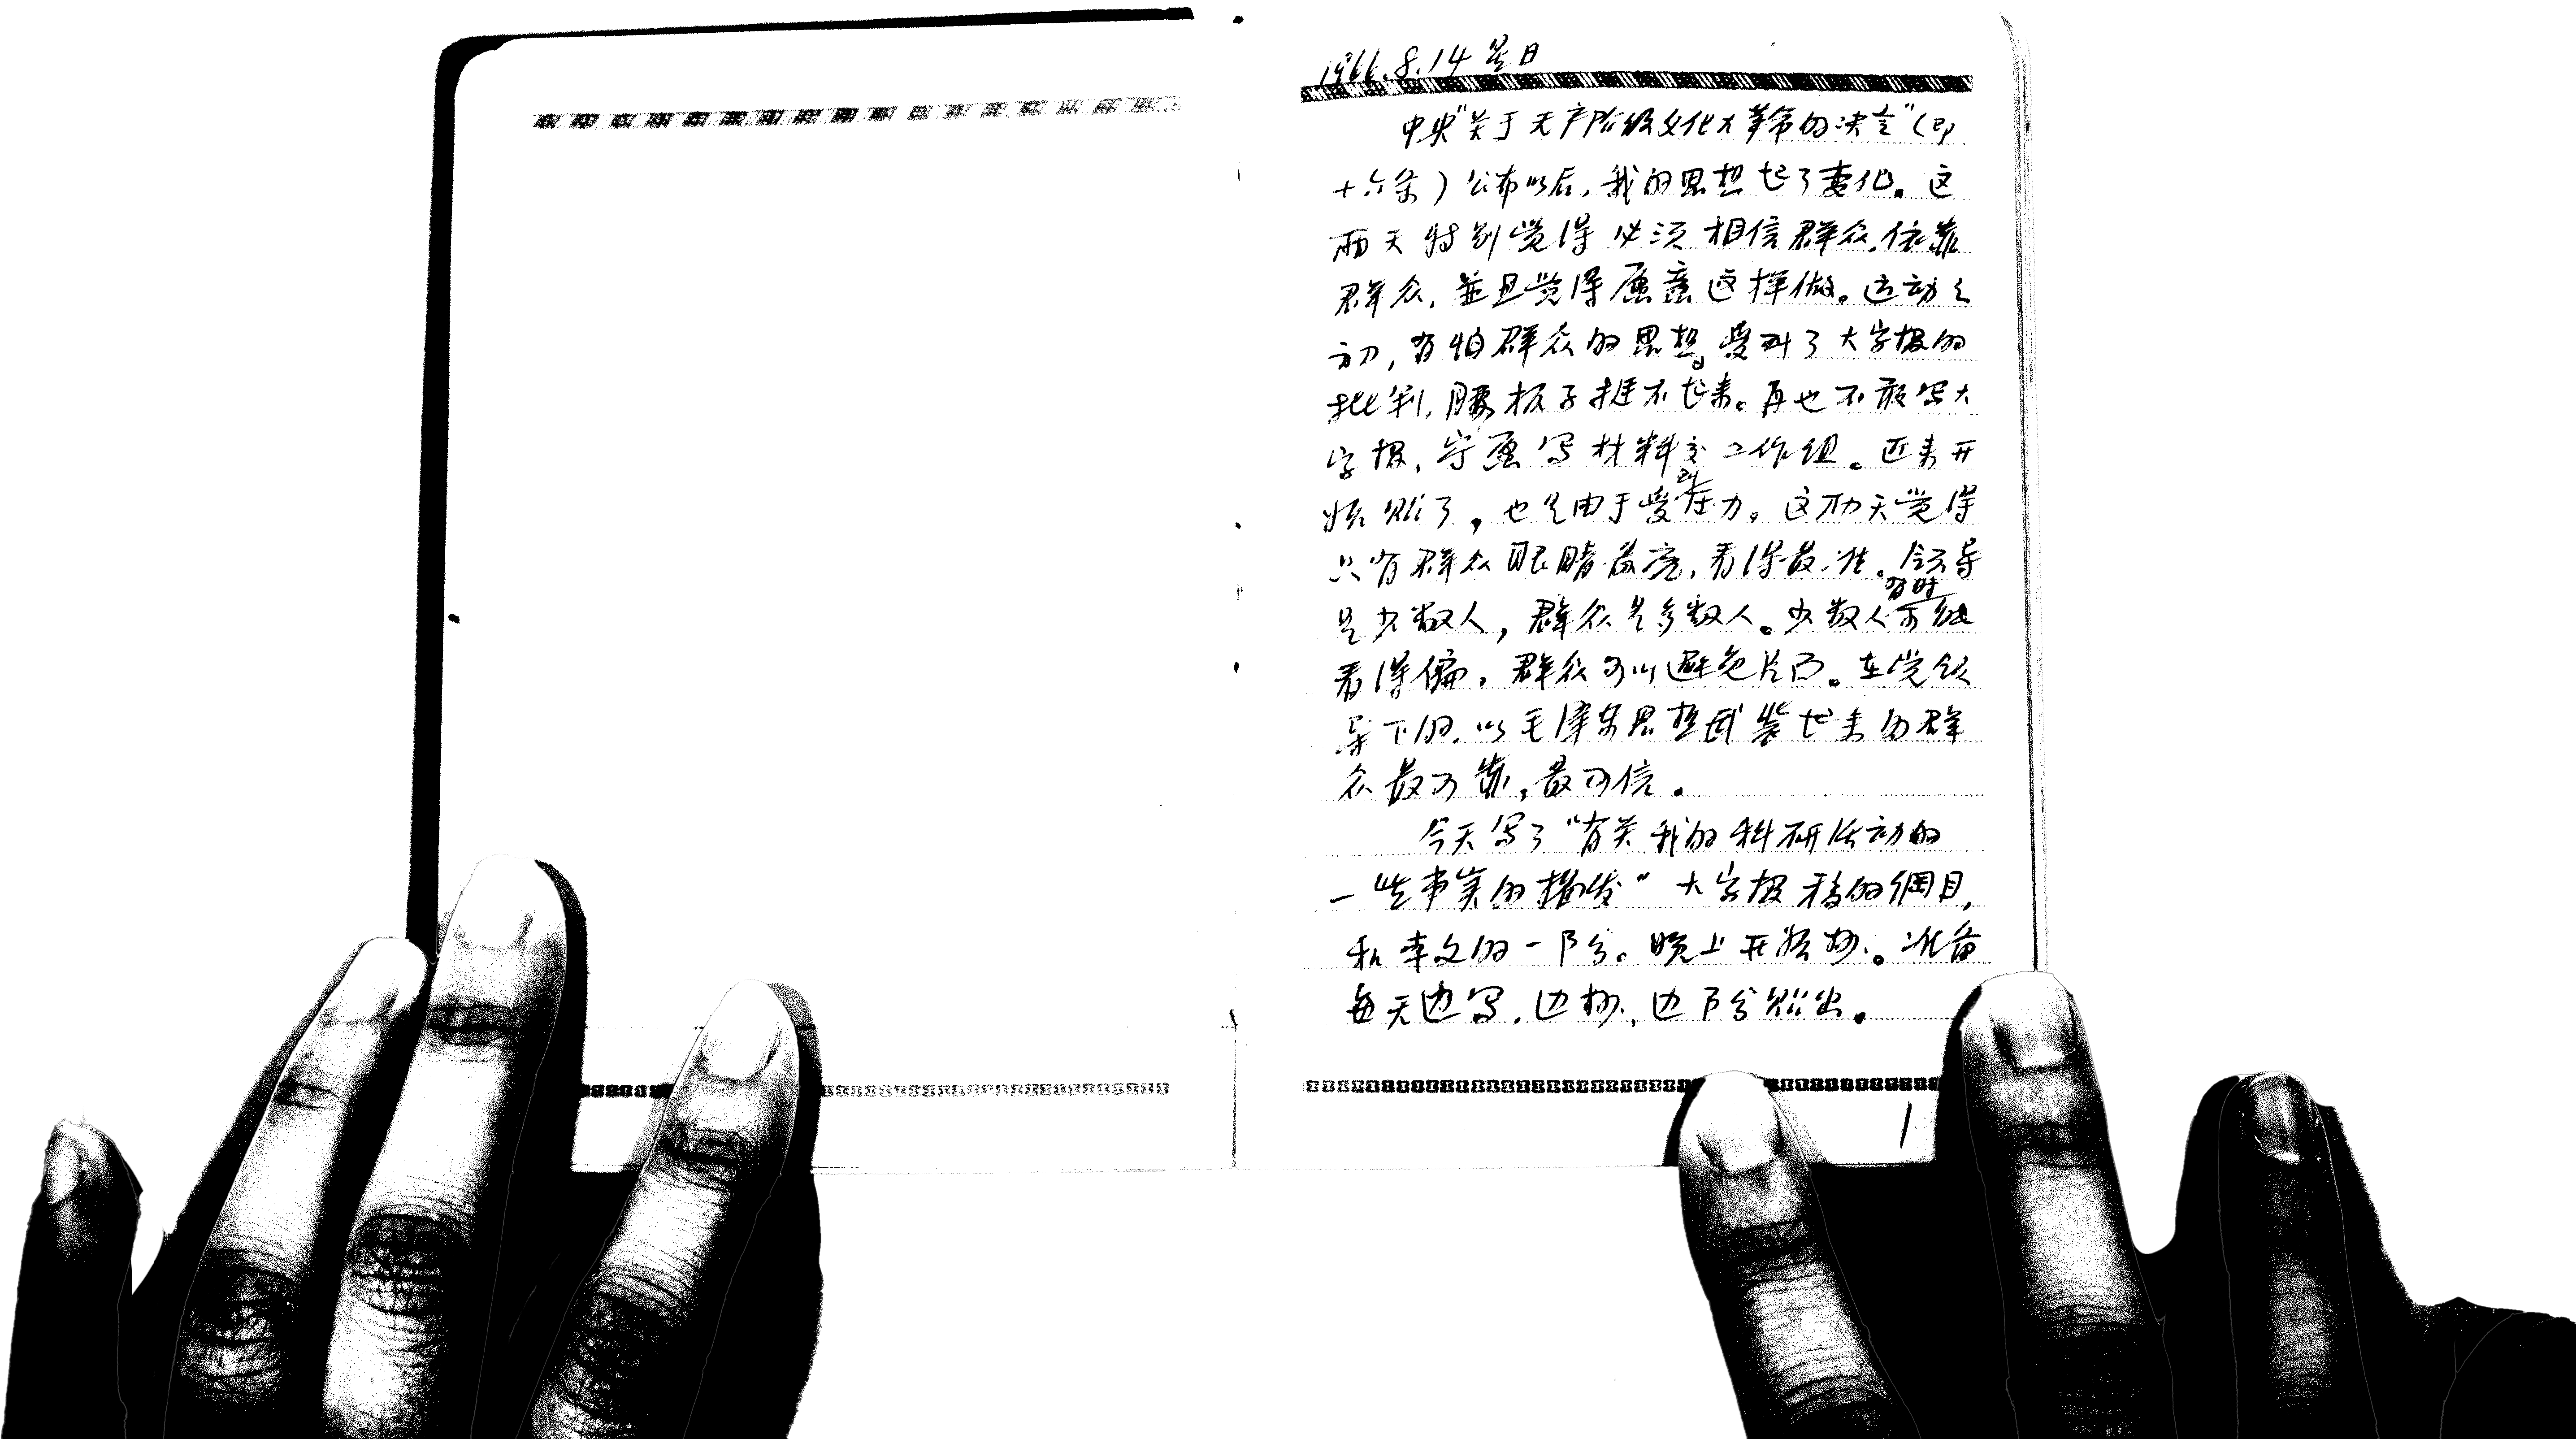 1966.8.14 星日
中央"关于无产阶级文化大革命的决定"（即
十六条）公布以后，我的思想起了变化。这
两天特别觉得必须相信群众，依靠
群众，并且觉得愿意这样做。运动之
初，有怕群众的思想。受到了大字报的
批判，腰板子挺不起来。再也不敢写大
字报，宁愿写材料交工作组。近来开
始贴了，也是由于受到压力。这两天觉得
只有群众眼睛最亮，看得最准。领导
是少数人，群众是多数人。少数人有时可能
看得偏，群众可以避免片面。在党领
导下的，以毛泽东思想武装起来的群
众最可靠，最可信。
今天写了"有关我的科研活动的
一些事实的揭发"大字报稿的纲目，
和本文的一部分。晚上开始抄。准备
每天边写，边抄，边部分贴出。
1